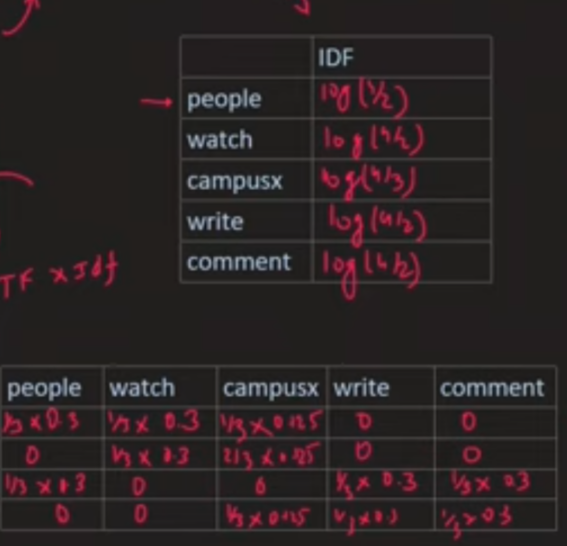 IDF
people log(4/2)
watch log(4/2)
campusx log(4/3)
write log(4/2)
comment log(4/2)
TF x Idf
people watch campusx write comment
1/3 x 0.3 1/3 x 0.3 1/3 x 0.125 0 0
0 1/3 x 0.3 2/3 x 0.125 0 0
1/3 x 0.3 0 0 1/3 x 0.3 1/3 x 0.3
0 0 1/3 x 0.125 1/3 x 0.3 1/3 x 0.3